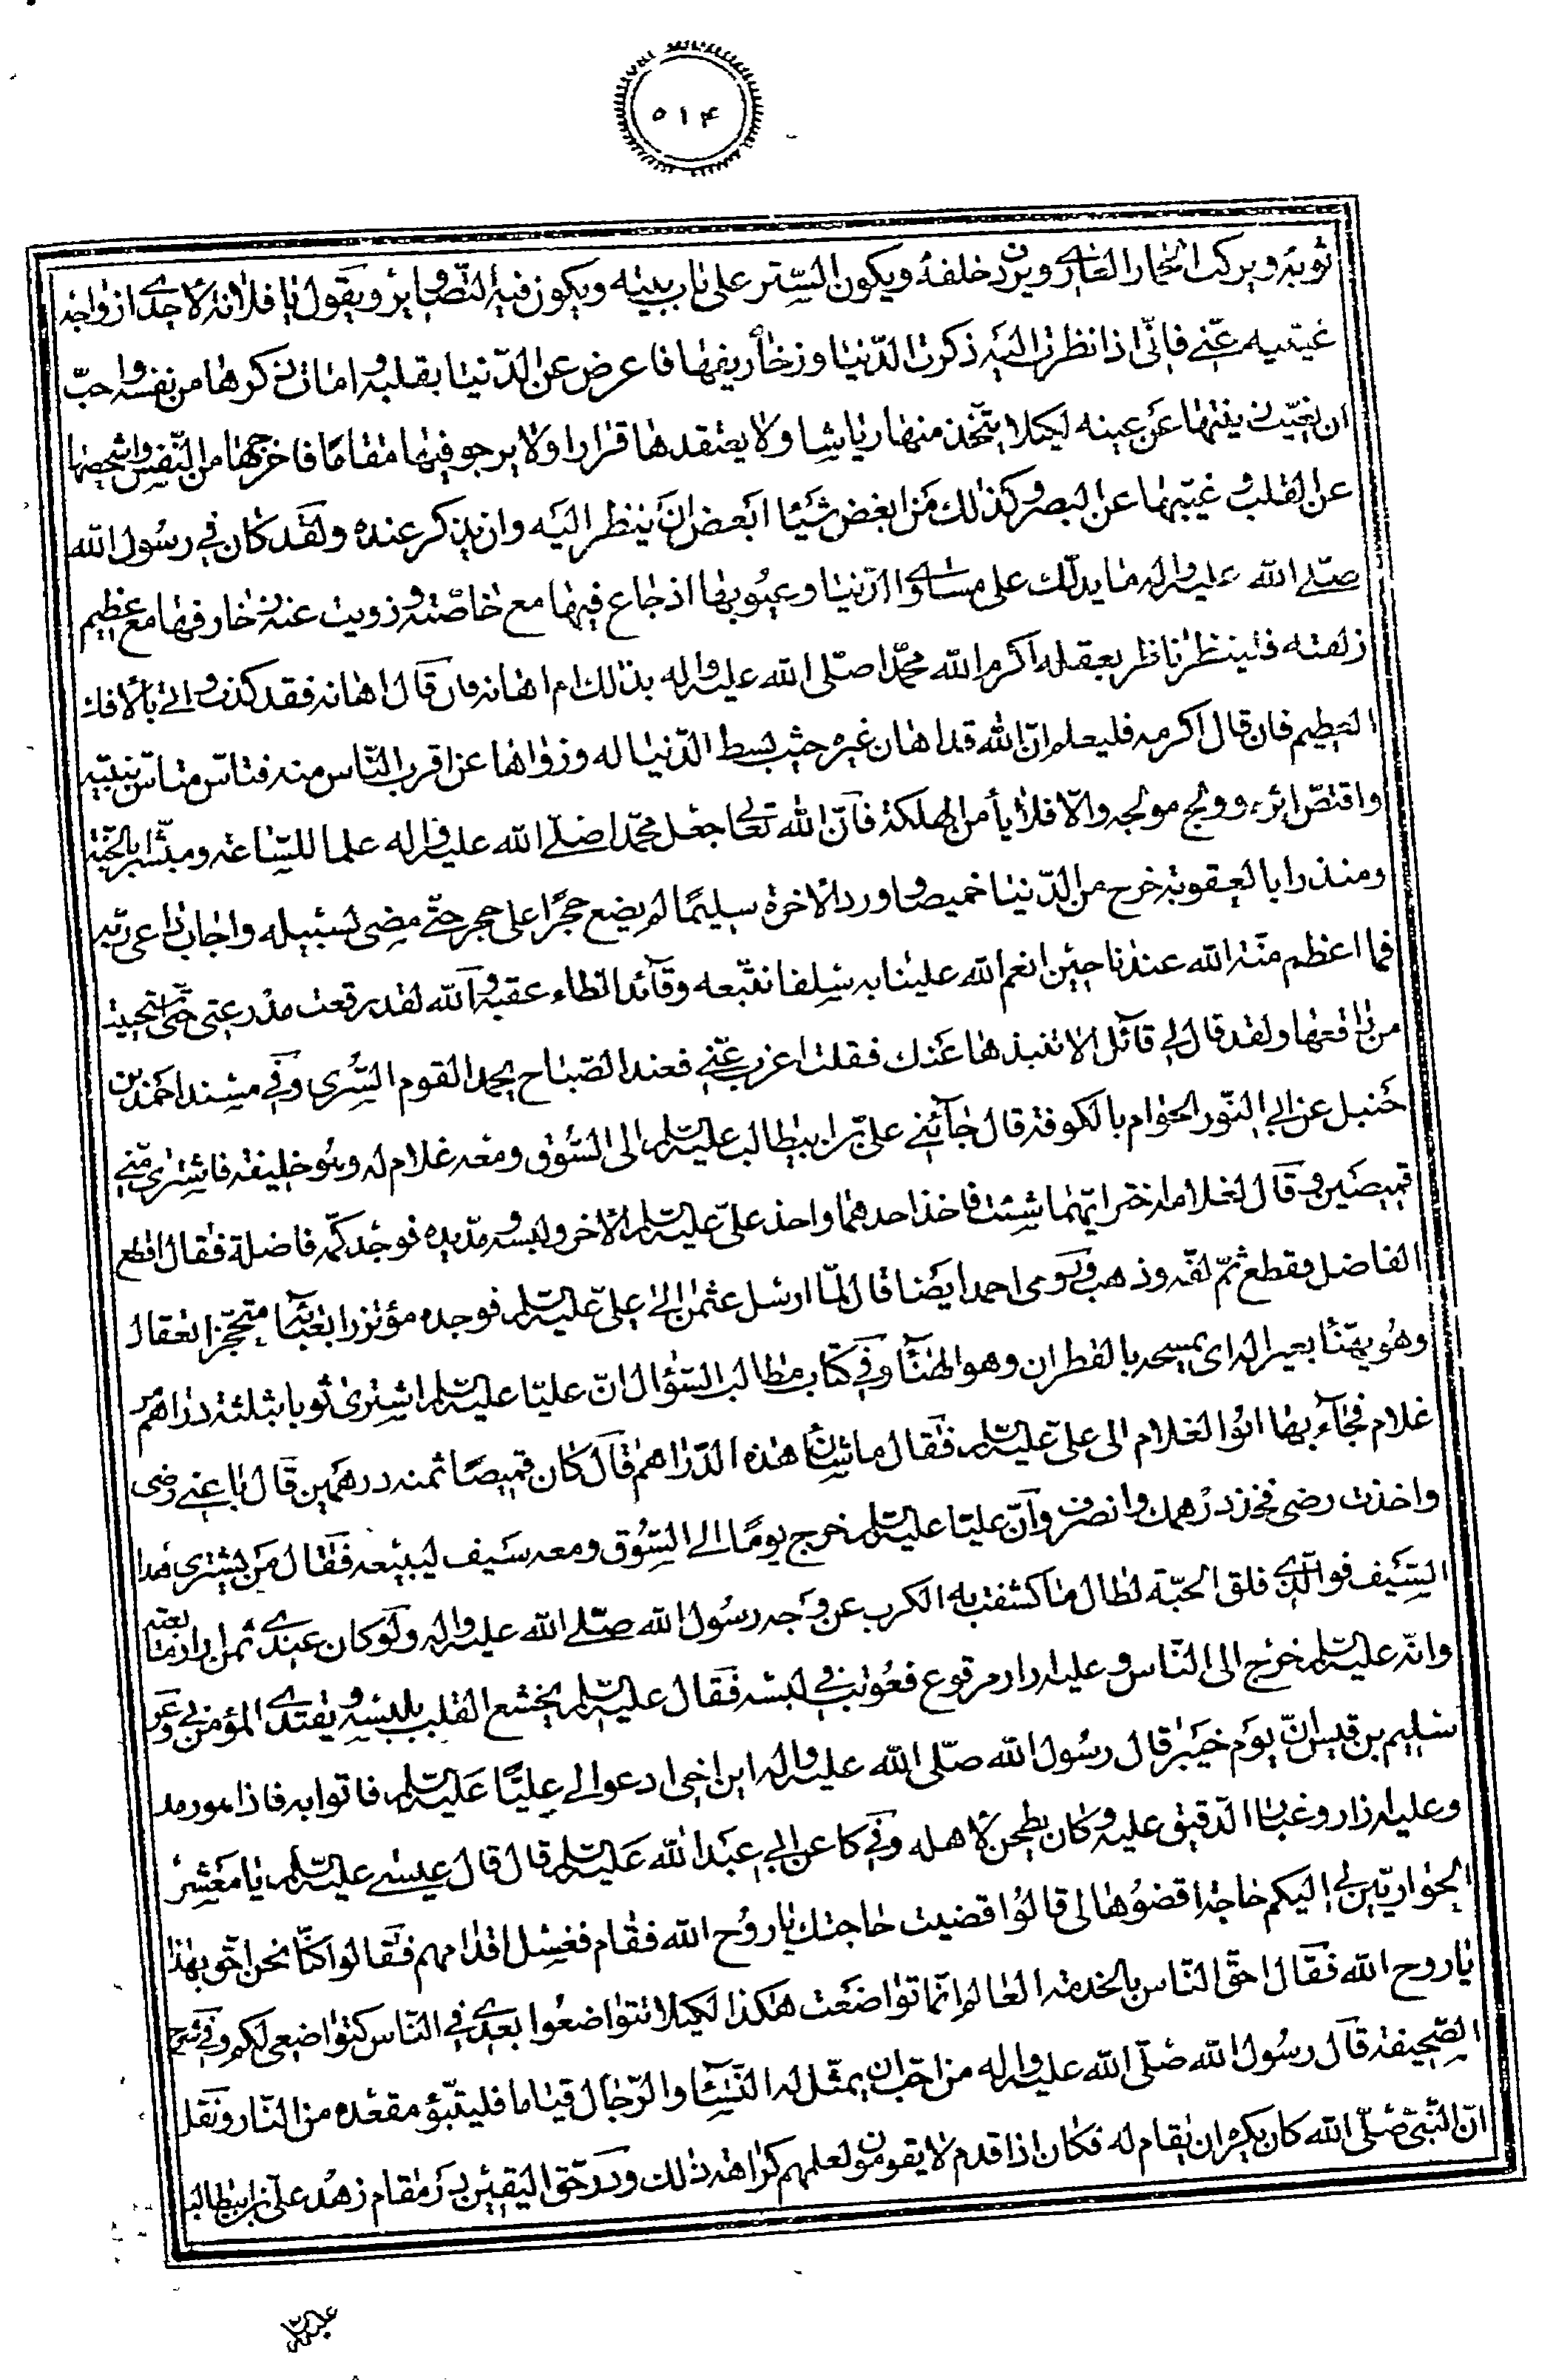 ۵۱۴
ثوبه ويركب الحمار العاري ويردف خلفه ويكون الستر على باب بيته ويكون فيه التصاوير ويقول يا فلانة لاحدى ازواجه
غيبيه عني فاني اذا نظرت اليه ذكرت الدنيا وزخاريفها فاعرض عن الدنيا بقلبه وامات ذكرها من نفسه واحب
ان تغيب زينتها عن عينه لكيلا يتخذ منها رياشا ولا يعتقدها قرارا ولا يرجو فيها مقاما فاخرجها من النفس واشخصها
عن القلب وغيبها عن البصر وكذلك من ابغض شيئا ابغض ان ينظر اليه وان يذكر عنده ولقد كان في رسول الله
صلى الله عليه واله ما يدلك على مساوى الدنيا وعيوبها اذ جاع فيها مع خاصته وزويت عنه زخارفها مع عظيم
زلفته فلينظر ناظر بعقله اكرم الله محمدا صلى الله عليه واله بذلك ام اهانه فان قال اهانه فقد كذب واتى بالافك
العظيم فان قال اكرمه فليعلم ان الله قد اهان غيره حيث بسط الدنيا له وزواها عن اقرب الناس منه فتاسى متاس بنبيه
واقتص اثره وولج مولجه والا فلا يأمن الهلكة فان الله تعالى جعل محمدا صلى الله عليه واله علما للساعة ومبشرا بالجنة
ومنذرا بالعقوبة خرج من الدنيا خميصا وورد الاخرة سليما لم يضع حجرا على حجر حتى مضى لسبيله واجاب داعي ربه
فما اعظم منة الله عندنا حين انعم الله علينا به سلفا نتبعه وقائدا نطاء عقبه والله لقد رقعت مدرعتي حتى استحييت
من راقعها ولقد قال لي قائل الا تنبذها عنك فقلت اعزب عني فعند الصباح يحمد القوم السرى وفي مسند احمد بن
حنبل عن ابي النور الحوام بالكوفة قال جائني علي بن ابيطالب عليه السلم الى السوق ومعه غلام له وهو خليفة فاشترى مني
قميصين وقال لغلامه اختر ايهما شئت فاخذ احدهما واخذ علي عليه السلم الاخر ولبسه ومد يده فوجد كمه فاضلة فقال اقطع
الفاضل فقطع ثم لفه وذهب وروى احمد ايضا قال لما ارسل عثمن الى علي عليه السلم فوجده مؤتزرا بعبائة متحجزا بعقال
وهو يهنا بعيرا له اى يمسحه بالقطران وهو الهناء وفي كتاب مطالب السؤال ان عليا عليه السلم اشترى ثوبا بثلثة دراهم من
غلام فجاء بها ابوا لغلام الى علي عليه السلم فقال ما شأن هذه الدراهم قال كان قميصا ثمنه درهمين قال باعني رضى
واخذت رضى فخذ درهمك وانصرف وان عليا عليه السلم خرج يوما الى السوق ومعه سيف ليبيعه فقال من يشترى هذا
السيف فوالذي فلق الحبة لطال ما كشفت به الكرب عن وجه رسول الله صلى الله عليه واله ولو كان عندى ثمن ازار ما بعته
وانه عليه السلم خرج الى الناس وعليه ازار مرقوع فعوتب في لبسه فقال عليه السلم يخشع القلب بلبسه ويقتدى المؤمن بي وعن
سليم بن قيس ان يوم خيبر قال رسول الله صلى الله عليه واله اين اخى ادعوا لي عليا عليه السلم فاتوا به فاذا هو رمد
وعليه ازار وغبار الدقيق عليه وكان يطحن لاهله وفي كا عن ابي عبد الله عليه السلم قال قال عيسى عليه السلم يا معشر
الحواريين لي اليكم حاجة اقضوها لي قالوا قضيت حاجتك يا روح الله فقام فغسل اقدامهم فقالوا كنا نحن احق بهذا
يا روح الله فقال احق الناس بالخدمة العالم انما تواضعت هكذا لكيلا تتواضعوا بعدى في الناس كتواضعي لكم وفي شرح
الصحيفة قال رسول الله صلى الله عليه واله من احب ان يمثل له النساء والرجال قياما فليتبؤ مقعده من النار ونقل
ان النبي صلى الله كان يكره ان يقام له فكان اذا قدم لا يقومون لعلمهم كراهة ذلك ودر حق اليقين در مقام زهد علي بن ابيطالب